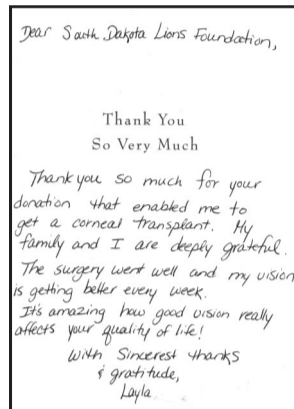 Dear South Dakota Lions Foundation,
Thank You
So Very Much
Thank you so much for your
donation that enabled me to
get a corneal transplant. My
family and I are deeply grateful.
The surgery went well and my vision
is getting better every week.
It's amazing how good vision really
affects your quality of life!
With Sincerest thanks
& gratitude,
Layla